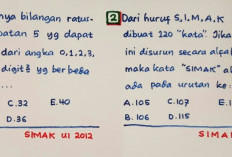 nya bilangan ratus-
patan 5 yg dapat
dari angka 0,1,2,3,
digit² yg berbeda
...
C. 32 E. 40
D. 36
SIMAK UI 2012
2 Dari huruf S, I, M, A, K
dibuat 120 "kata". Jika
ini disusun secara alfa
maka kata "SIMAK" a
ada pada urutan ke:
A. 105 C. 107 E. 1
B. 106 D. 115
SIMA